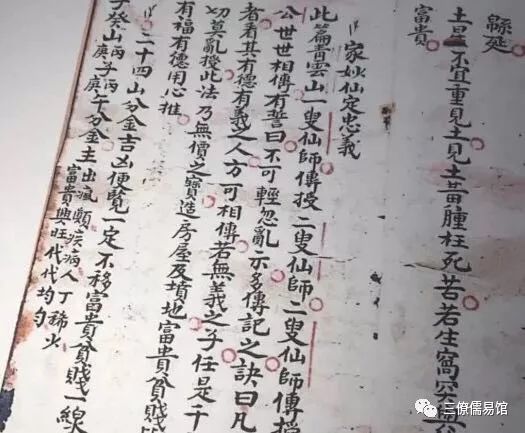 緜延
土星不宜重見土見土黃腫枉死苦若生窩突
富貴
家妙仙定忠義
此篇青雲山一叟仙師傳授二叟仙師二叟仙師傳授
公世世相傳有誓曰不可輕忽亂示多傳記之訣曰凡
者看其有德有義之人方可相傳若無義之子任是千
切莫亂授此法乃無價之寶造房屋及墳地富貴貧賤
有福有德用心推
二十四山分金吉凶便覽一定不移富貴貧賤一線
子癸山丙子丙午分金主出瘋顛疾病人丁稀少
庚子庚午富貴興旺代代均勻
三僚儒易馆